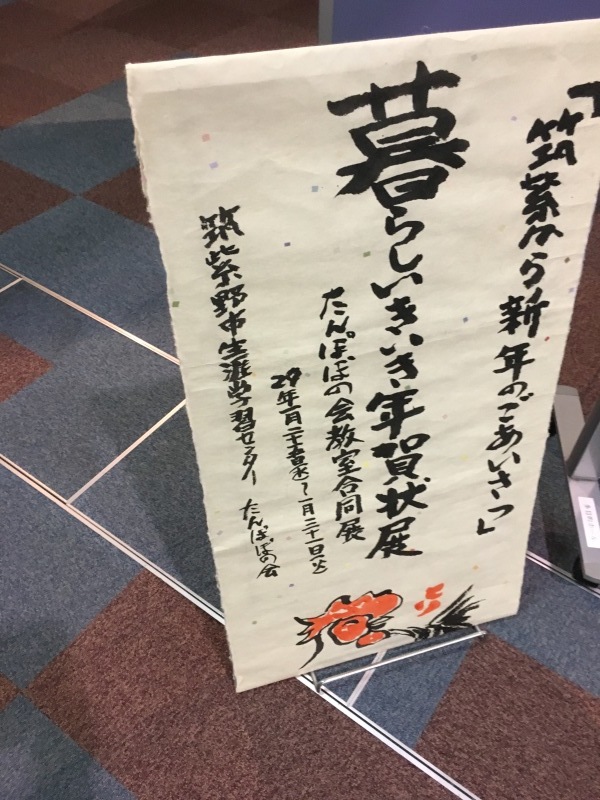 「筑紫から新年のごあいさつ」
暮らしいきいき年賀状展
たんぽぽの会教室合同展
29年一月二十五日(水)〜一月三十一日(火)
筑紫野市生涯学習センター たんぽぽの会